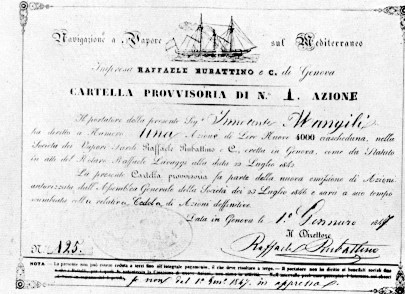 Navigazione a Vapore sul Mediterraneo
Impresa RAFFAELE RUBATTINO e C. di Genova
CARTELLA PROVVISORIA DI N.° 1. AZIONE
Il portatore della presente Sig.r Innocente Mangili
ha diritto a Numero Una Azione di Lire Nuove 1000 ciascheduna, nella
Società dei Vapori Sardi Raffaele Rubattino e C. eretta in Genova, come da Statuto
in atti del Notaro Raffaele Luvaggi alla data 22 Luglio
La presente Cartella provvisoria fa parte della nuova emissione di Azioni
autorizzata dall'Assemblea Generale della Società dei 23 Luglio 1866 e sarà a suo tempo
cambiata colla relativa Cedola di Azioni definitive.
Data in Genova il 1.° Gennaro 1867
Il Direttore
Raffaele Rubattino
N.° 125.
NOTA